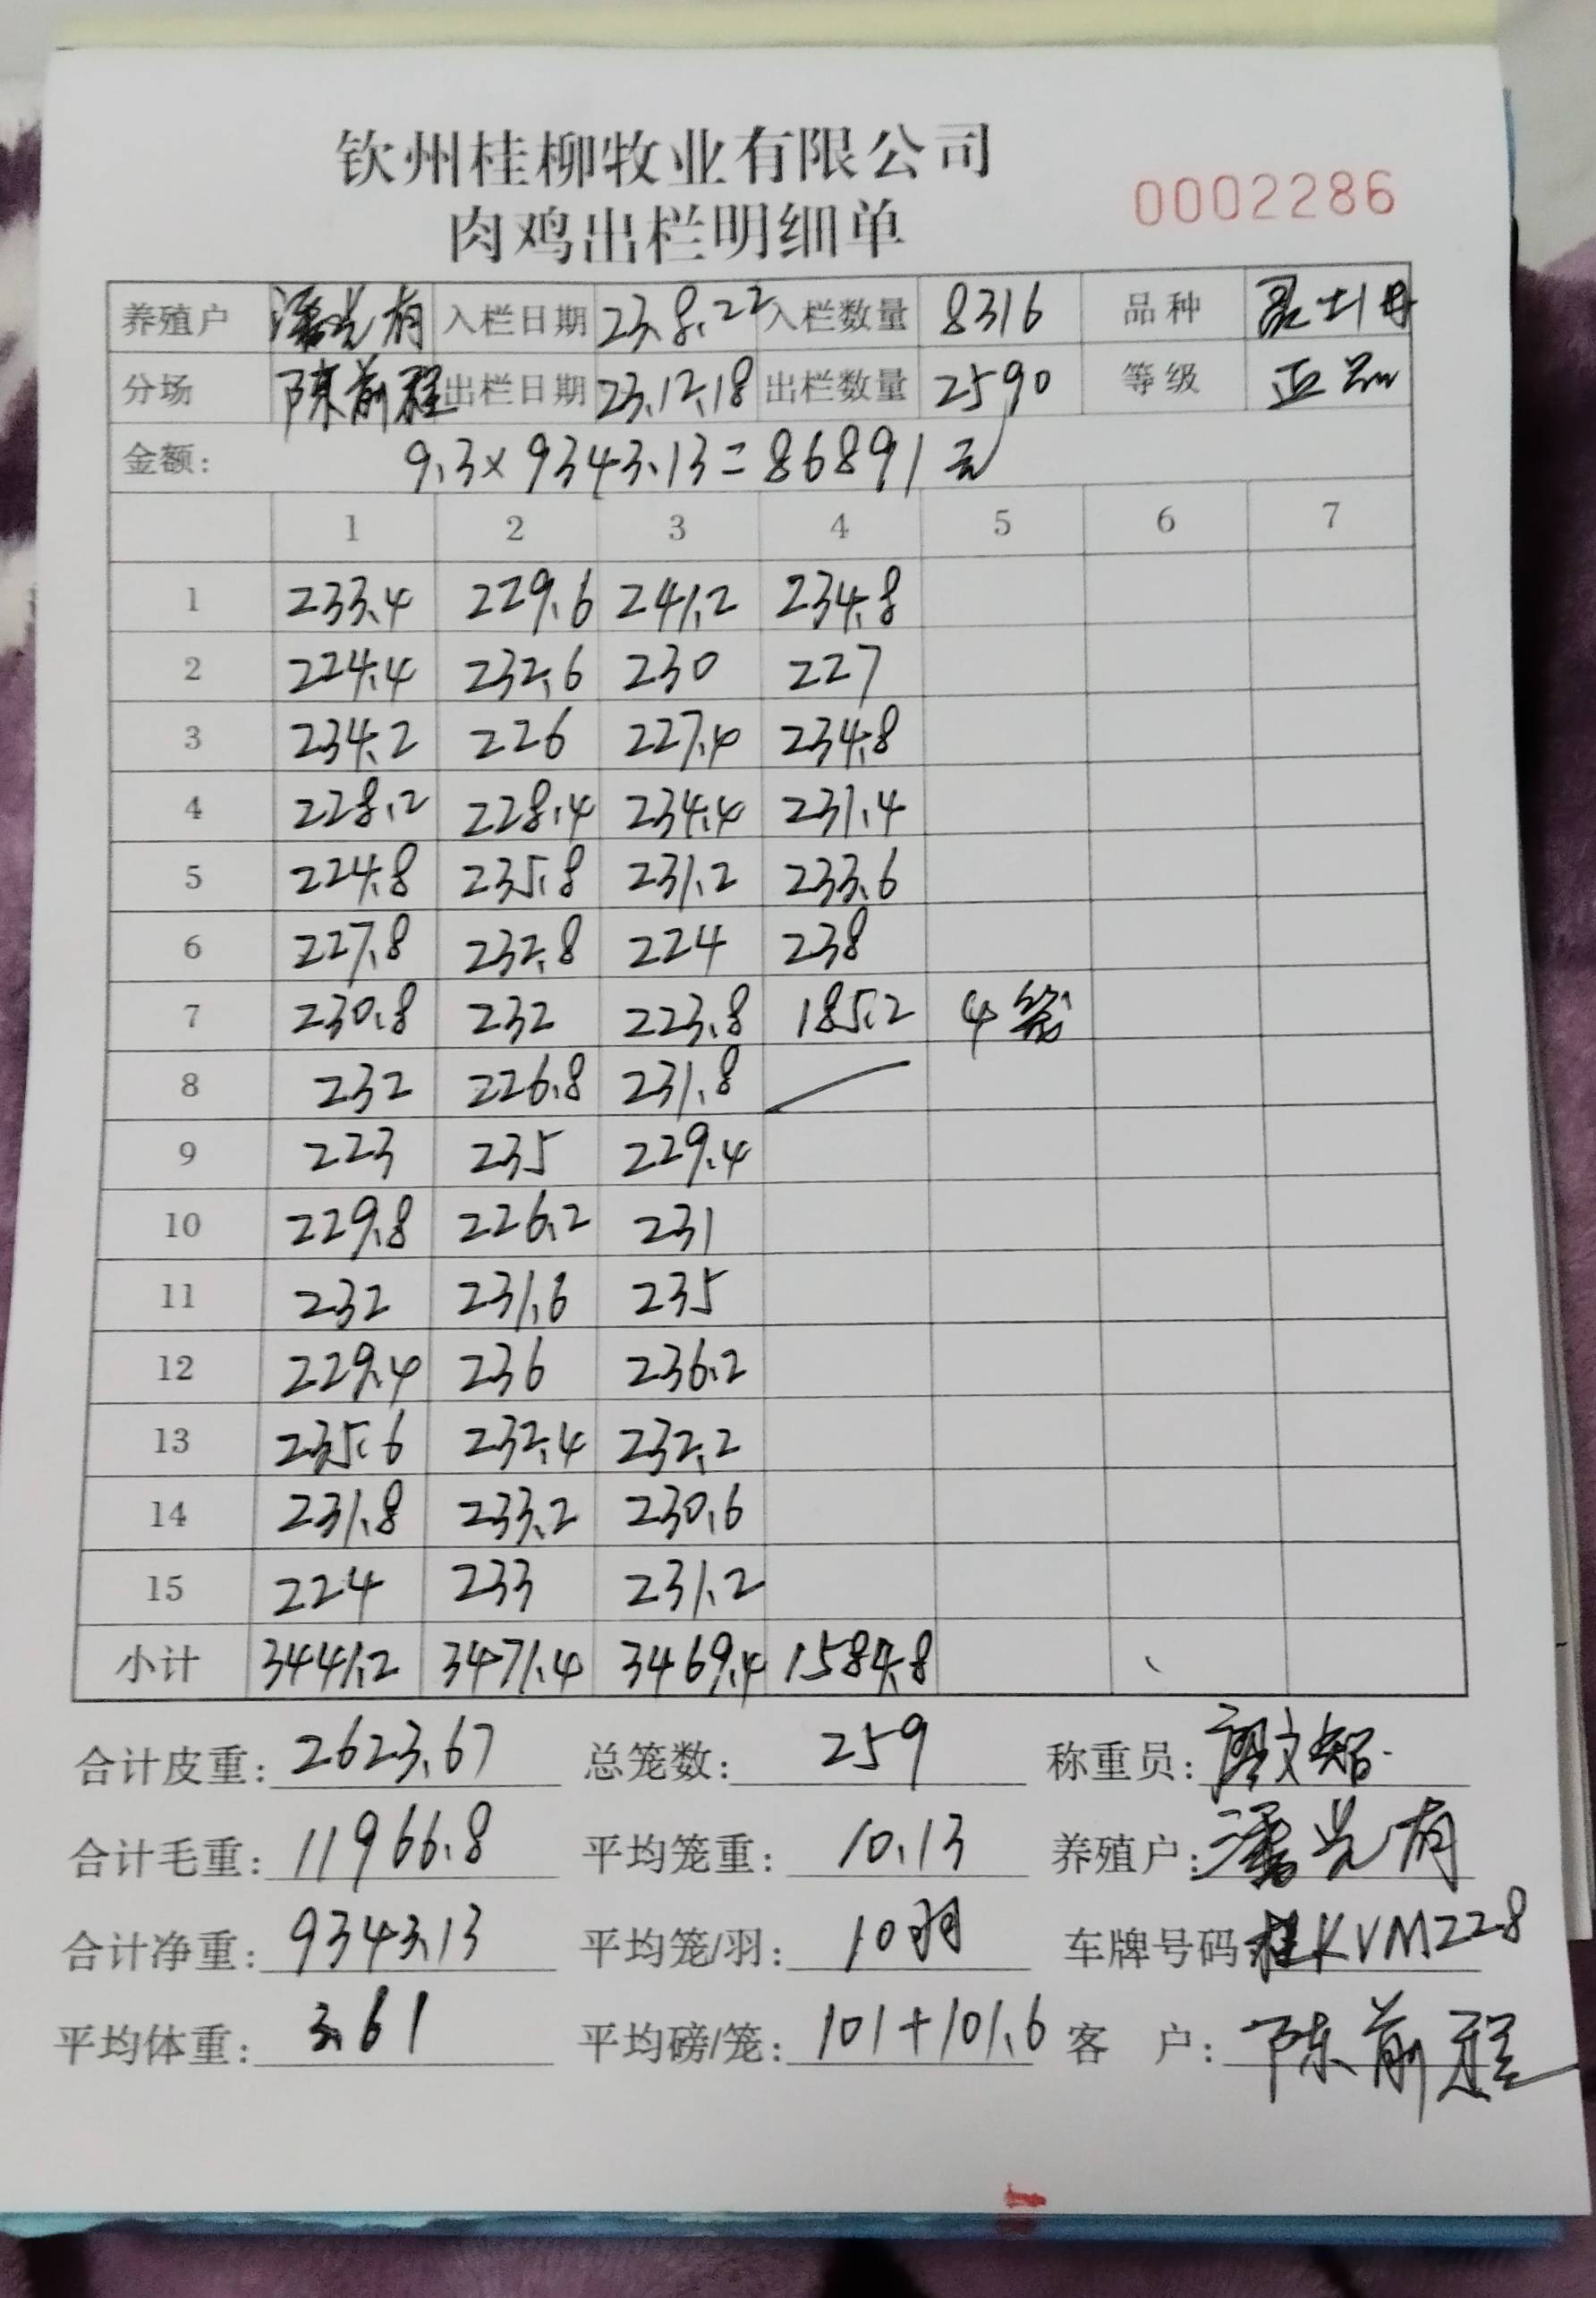 钦州桂柳牧业有限公司
0002286
肉鸡出栏明细单
养殖户 潘光有 入栏日期 23.8.22 入栏数量 8316 品种
分场 陈前程 出栏日期 23.12.18 出栏数量 2590 等级 正品
金额: 9.3×9343.13=86891元
1 2 3 4 5 6 7
1 233.4 229.6 241.2 234.8
2 224.4 232.6 230 227
3 234.2 226 227.4 234.8
4 228.2 228.4 234.4 231.4
5 224.8 235.8 231.2 233.6
6 227.8 232.8 224 238
7 230.8 232 223.8 185.2 4笼
8 232 226.8 231.8
9 223 235 229.4
10 229.8 226.2 231
11 232 231.6 235
12 229.4 236 236.2
13 235.6 232.4 232.2
14 231.8 233.2 230.6
15 224 233 231.2
小计 3441.2 3471.4 3469.4 1584.8
合计皮重: 2623.67 总笼数: 259 称重员: 廖文智
合计毛重: 11966.8 平均笼重: 10.13 养殖户: 潘光有
合计净重: 9343.13 平均笼/羽: 10羽 车牌号码: 桂KVM228
平均体重: 3.61 平均磅/笼: 101+101.6 客 户: 陈前程